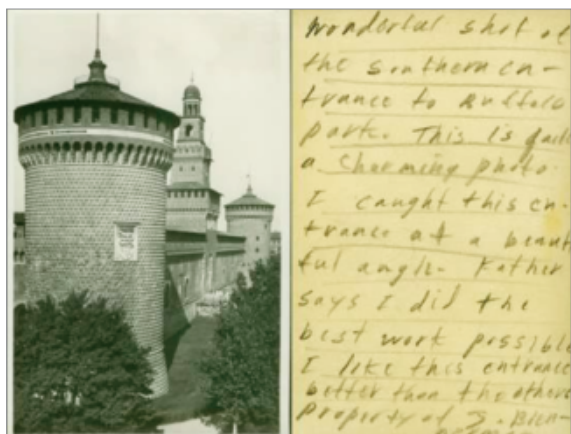 wonderful shot of
the southern en-
trance to Buffalo
park. This is quite
a charming photo.
I caught this en-
trance at a beaut
ful angle. Father
says I did the
best work possible
I like this entrance
better than the others
Property of J. Bien-